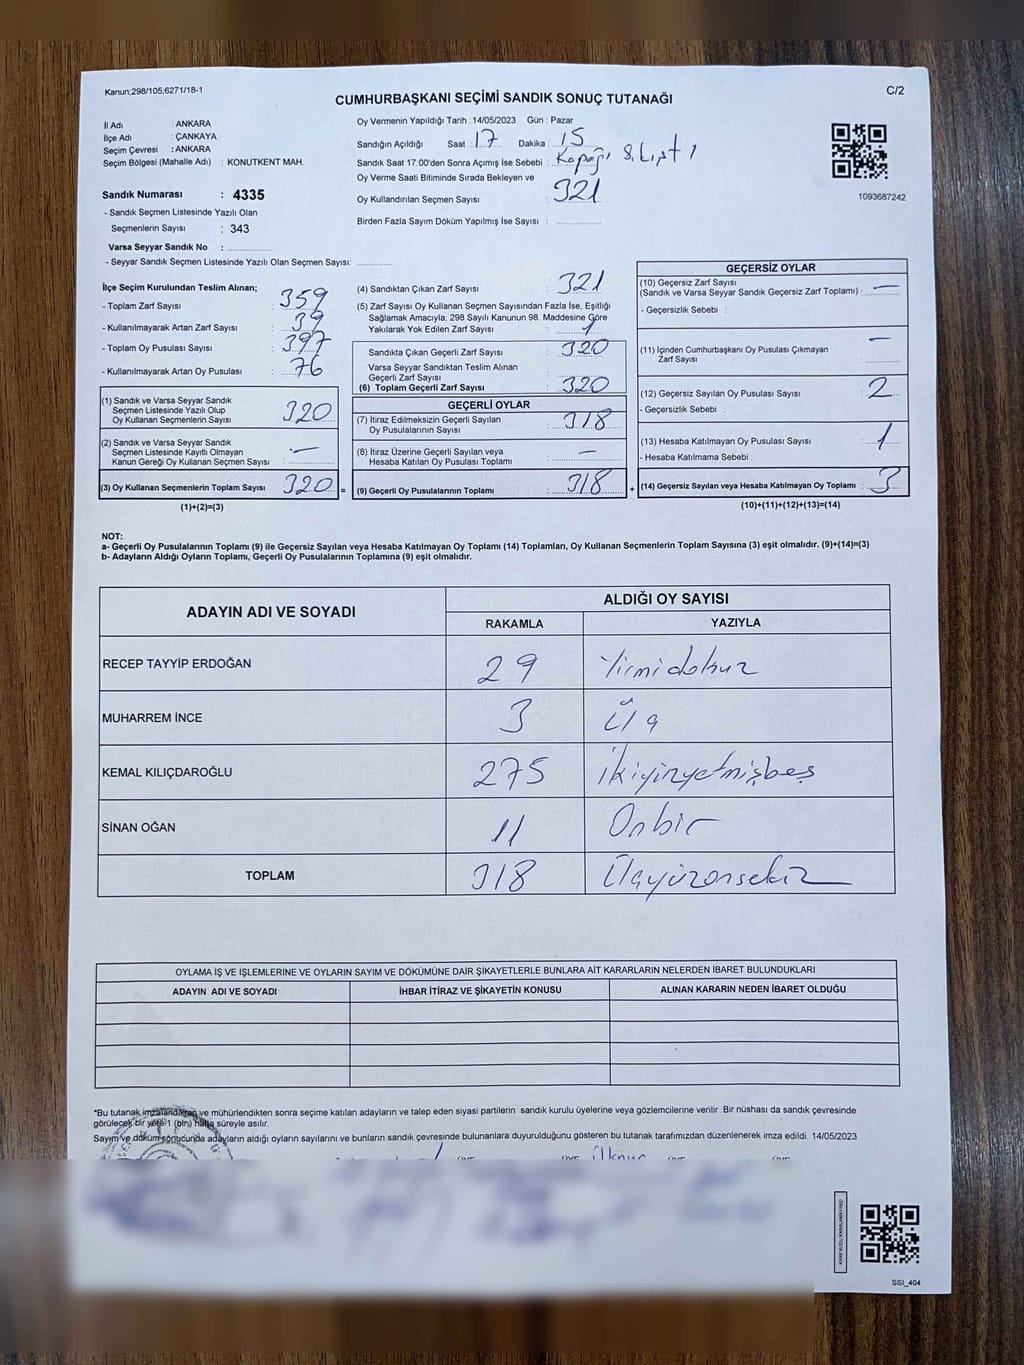 Kanun;298/105,6271/18-1
C/2
CUMHURBAŞKANI SEÇİMİ SANDIK SONUÇ TUTANAĞI
İl Adı : ANKARA
İlçe Adı : ÇANKAYA
Seçim Çevresi : ANKARA
Seçim Bölgesi (Mahalle Adı) : KONUTKENT MAH.
Sandık Numarası : 4335
- Sandık Seçmen Listesinde Yazılı Olan
Seçmenlerin Sayısı : 343
Varsa Seyyar Sandık No :
- Seyyar Sandık Seçmen Listesinde Yazılı Olan Seçmen Sayısı:
Oy Vermenin Yapıldığı Tarih : 14/05/2023 Gün : Pazar
Sandığın Açıldığı Saat : 17 Dakika : 15
Sandık Saat 17:00'den Sonra Açımış İse Sebebi :
Oy Verme Saati Bitiminde Sırada Bekleyen ve
Oy Kullandırılan Seçmen Sayısı : 321
Birden Fazla Sayım Döküm Yapılmış İse Sayısı :
1093687242
İlçe Seçim Kurulundan Teslim Alınan;
- Toplam Zarf Sayısı : 359
- Kullanılmayarak Artan Zarf Sayısı : 39
- Toplam Oy Pusulası Sayısı : 397
- Kullanılmayarak Artan Oy Pusulası : 76
(1) Sandık ve Varsa Seyyar Sandık
Seçmen Listesinde Yazılı Olup
Oy Kullanan Seçmenlerin Sayısı : 320
(2) Sandık ve Varsa Seyyar Sandık
Seçmen Listesinde Kayıtlı Olmayan
Kanun Gereği Oy Kullanan Seçmen Sayısı : —
(3) Oy Kullanan Seçmenlerin Toplam Sayısı : 320 =
(1)+(2)=(3)
(4) Sandıktan Çıkan Zarf Sayısı : 321
(5) Zarf Sayısı Oy Kullanan Seçmen Sayısından Fazla İse, Eşitliği
Sağlamak Amacıyla; 298 Sayılı Kanunun 98. Maddesine Göre
Yakılarak Yok Edilen Zarf Sayısı : 1
Sandıkta Çıkan Geçerli Zarf Sayısı : 320
Varsa Seyyar Sandıktan Teslim Alınan
Geçerli Zarf Sayısı
(6) Toplam Geçerli Zarf Sayısı : 320
GEÇERLİ OYLAR
(7) İtiraz Edilmeksizin Geçerli Sayılan
Oy Pusulalarının Sayısı : 318
(8) İtiraz Üzerine Geçerli Sayılan veya
Hesaba Katılan Oy Pusulası Toplamı : —
(9) Geçerli Oy Pusulalarının Toplamı : 318 +
GEÇERSİZ OYLAR
(10) Geçersiz Zarf Sayısı
(Sandık ve Varsa Seyyar Sandık Geçersiz Zarf Toplamı) : —
- Geçersizlik Sebebi :
(11) İçinden Cumhurbaşkanı Oy Pusulası Çıkmayan
Zarf Sayısı : —
(12) Geçersiz Sayılan Oy Pusulası Sayısı : 2
- Geçersizlik Sebebi :
(13) Hesaba Katılmayan Oy Pusulası Sayısı : 1
- Hesaba Katılmama Sebebi :
(14) Geçersiz Sayılan veya Hesaba Katılmayan Oy Toplamı : 3
(10)+(11)+(12)+(13)=(14)
NOT:
a- Geçerli Oy Pusulalarının Toplamı (9) ile Geçersiz Sayılan veya Hesaba Katılmayan Oy Toplamı (14) Toplamları, Oy Kullanan Seçmenlerin Toplam Sayısına (3) eşit olmalıdır. (9)+(14)=(3)
b- Adayların Aldığı Oyların Toplamı, Geçerli Oy Pusulalarının Toplamına (9) eşit olmalıdır.
ADAYIN ADI VE SOYADI ALDIĞI OY SAYISI
RAKAMLA YAZIYLA
RECEP TAYYİP ERDOĞAN 29 Yirmidokuz
MUHARREM İNCE 3 Üç
KEMAL KILIÇDAROĞLU 275 İkiyüzyetmişbeş
SİNAN OĞAN 11 Onbir
TOPLAM 318 Üçyüzonsekiz
OYLAMA İŞ VE İŞLEMLERİNE VE OYLARIN SAYIM VE DÖKÜMÜNE DAİR ŞİKAYETLERLE BUNLARA AİT KARARLARIN NELERDEN İBARET BULUNDUKLARI
ADAYIN ADI VE SOYADI İHBAR İTİRAZ VE ŞİKAYETİN KONUSU ALINAN KARARIN NEDEN İBARET OLDUĞU
*Bu tutanak imzalandıktan ve mühürlendikten sonra seçime katılan adayların ve talep eden siyasi partilerin sandık kurulu üyelerine veya gözlemcilerine verilir. Bir nüshası da sandık çevresinde
görülecek bir yere 1 (bir) hafta süreyle asılır.
Sayım ve döküm sonucunda adayların aldığı oyların sayılarını ve bunların sandık çevresinde bulunanlara duyurulduğunu gösteren bu tutanak tarafımızdan düzenlenerek imza edildi. 14/05/2023
SSI_404